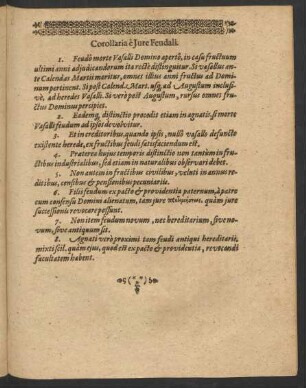 Corollaria è Jure Feudali.
1. Feudo morte Vasalli Domino aperto, in casu fructuum
ultimi anni adjudicandorum ita rectè distinguetur. Si vasallus an-
te Calendas Martii moritur, omnes illius anni fructus ad Domi-
num pertinent. Si post Calend. Mart. usq; ad Augustum inclusi-
vè, ad heredes Vasalli. Si verò post Augustum, rursus omnes fru-
ctus Dominus percipiet.
2. Eademq; distinctio procedit etiam in agnatis, si morte
Vasalli feudum ad ipsos devolvitur.
3. Et in creditoribus, quando ipsis, nullo vasalli defuncti
existente herede, ex fructibus feudi satisfaciendum est.
4. Praeterea hujus temporis distinctio non tantùm in fru-
ctibus industrialibus, sed etiam in naturalibus observari debet.
5. Non autem in fructibus civilibus, veluti in annuis re-
ditibus, censibus & pensionibus pecuniariis.
6. Filii feudum ex pacto & providentia paternum, à patre
cum consensu Domini alienatum, tam jure quàm jure
successionis revocare possunt.
7. Non item feudum novum, vel hereditarium, sive no-
vum, sive antiquum sit.
8. Agnati verò proximi tam feudi antiqui hereditarii,
mixti scil. quàm ejus, quod est ex pacto & providentia, revocandi
facultatem habent.